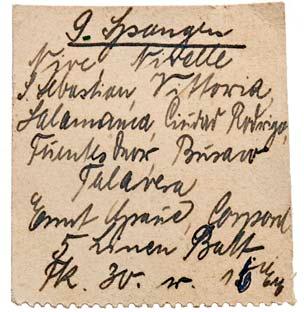 9. Spangen
Nive Nivelle
S. Sebastian, Vittoria,
Salamanca, Ciudad Rodrigo,
Fuentes Onor Busaco
Talavera
Ernst Corporal
5 Linen Batt
Fk. 30.